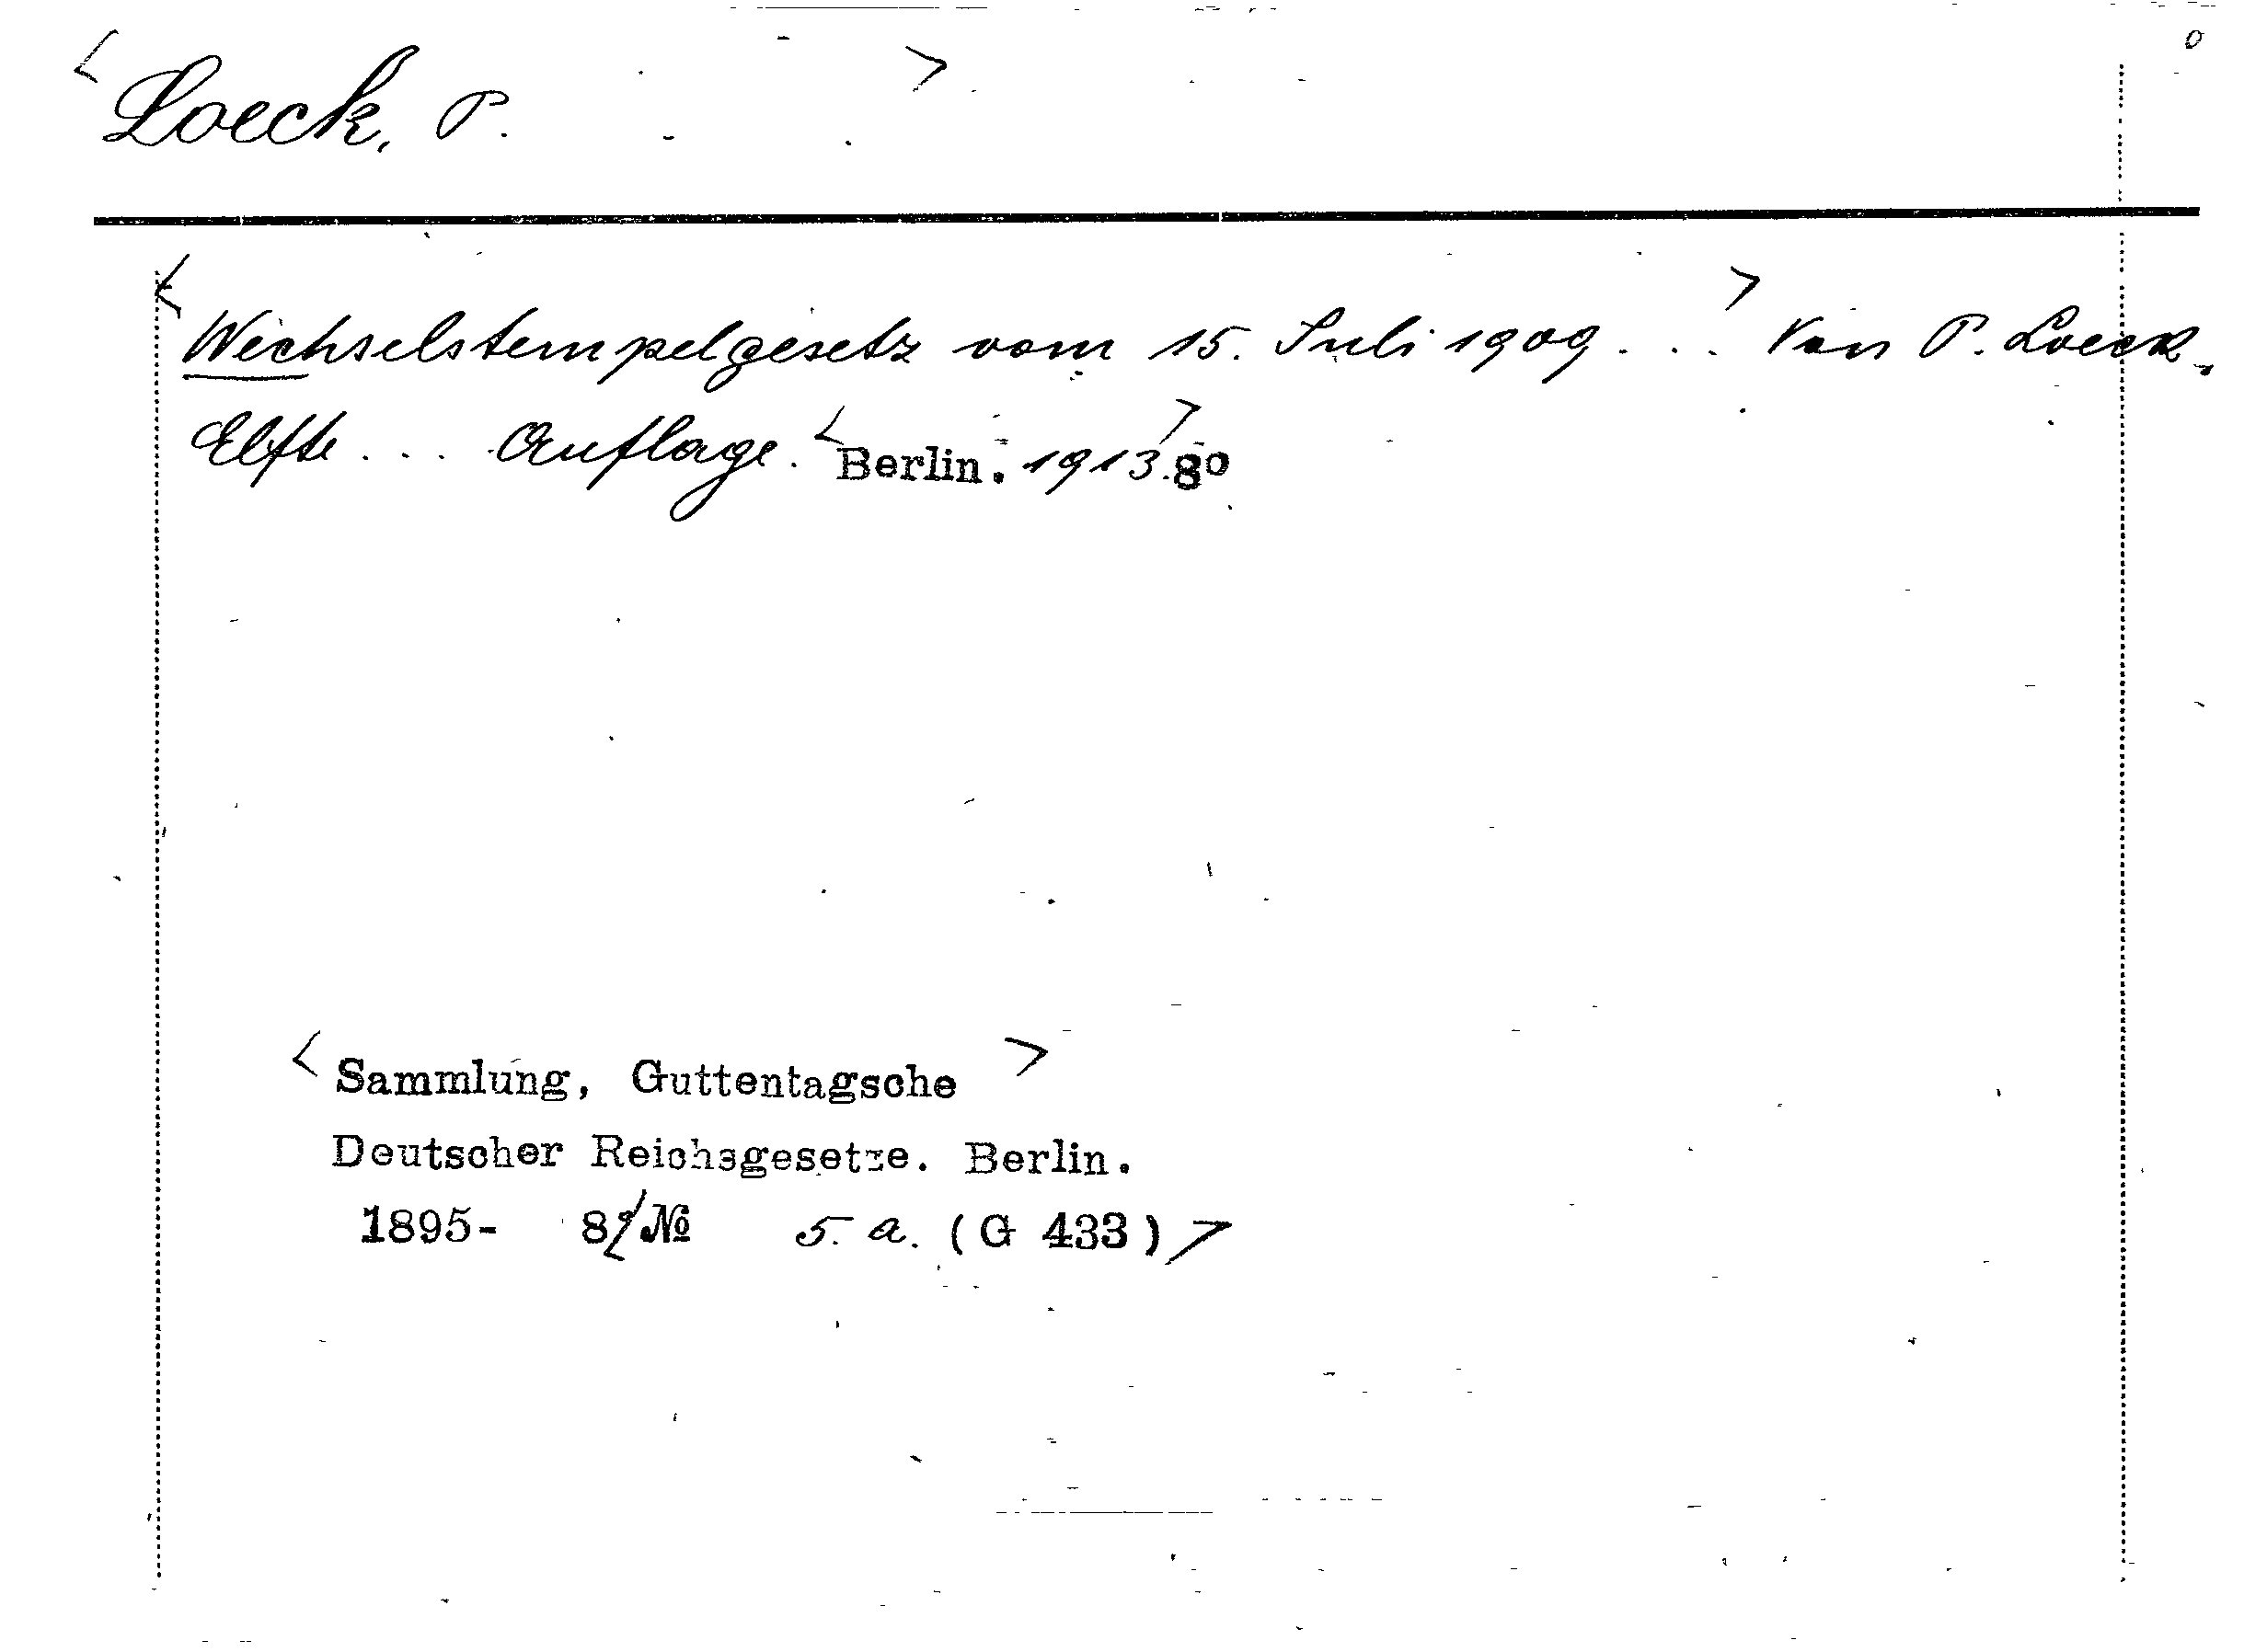 < Loeck, P. >
< Wechselstempelgesetz vom 15. Juli 1909 . . . > Von P. Loeck.
Elfte . . . Auflage. < Berlin. 1913. > 8º
< Sammlung, Guttentagsche >
Deutscher Reichsgesetze. Berlin.
1895- 8º < № 5. a. (G 433) >